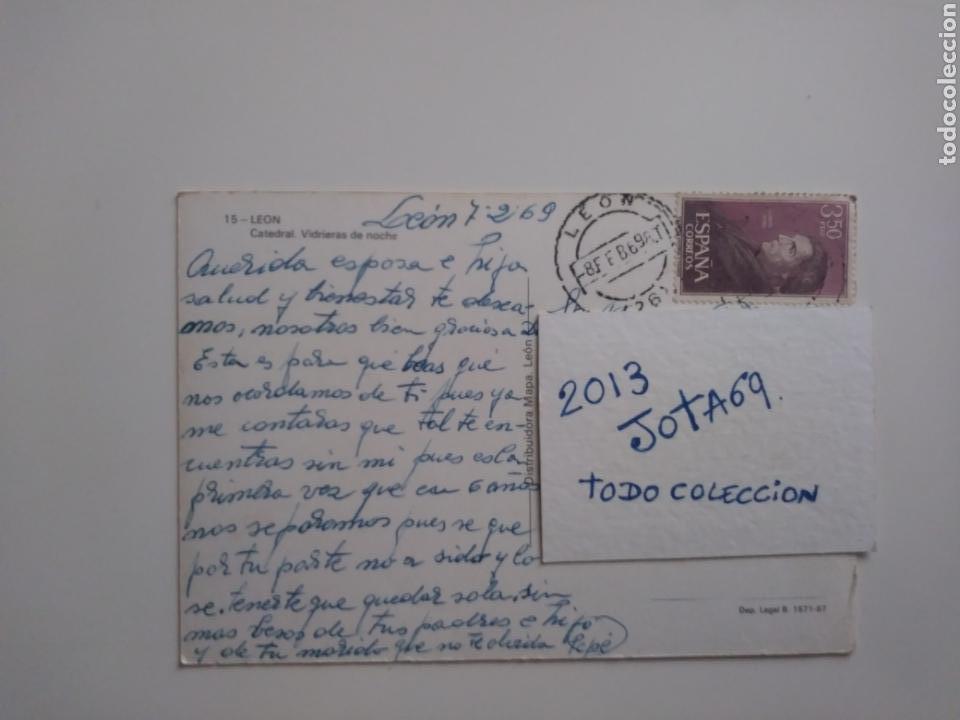 15 - LEON
Catedral. Vidrieras de noche
León 7-2-69
Querida esposa e hija
salud y bienestar te desea-
mos, nosotros bien gracias a D
Esta es para que beas que
nos acordamos de ti pues ya
me contaras que tal te en-
cuentras sin mi pues es la
primera vez que en 6 años
nos separamos pues se que
por tu parte no a sido y lo
se. tenerte que quedar sola. sin
mas besos de tus padres e hijo
y de tu marido que no te olvida Pepe
Distribuidora Mapa. León
LEON
8 FEB 69
3'50
PTS
ESPAÑA
CORREOS
2013
JOTA69.
TODO COLECCION
Dep. Legal B. 1571-67
todocoleccion